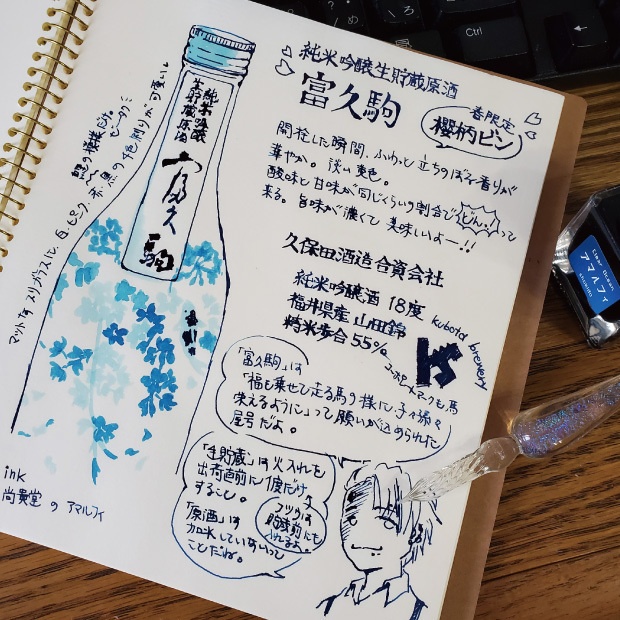 純米吟醸生貯蔵原酒
富久駒
春限定
櫻柄ビン
開栓した瞬間、ふわっと立ちのぼる香りが
華やか。淡い黄色。
酸味と甘味が同じくらいの割合でどんっって
来る。旨味が濃くて美味しいよー!!
久保田酒造合資会社
純米吟醸酒 18度
福井県産山田錦
精米歩合 55%
kubota brewery
マークも馬
「富久駒」は
「福も乗せて走る馬の様に、子々孫々
栄えるように」って願いが込められた
屋号だよ。
「生貯蔵」は火入れを
出荷直前に1度だけ
すること。
フツウは
貯蔵前にも
入れるよ。
「原酒」は
加水していないって
ことだね。
純米吟醸
生貯蔵原酒
富久駒
マットなスリガラスに、白、ピンク、赤、黒の色刷りが可愛いし
ink
尚貴堂 の アマルフィ
Clear Ocean
アマルフィ
Ctrl